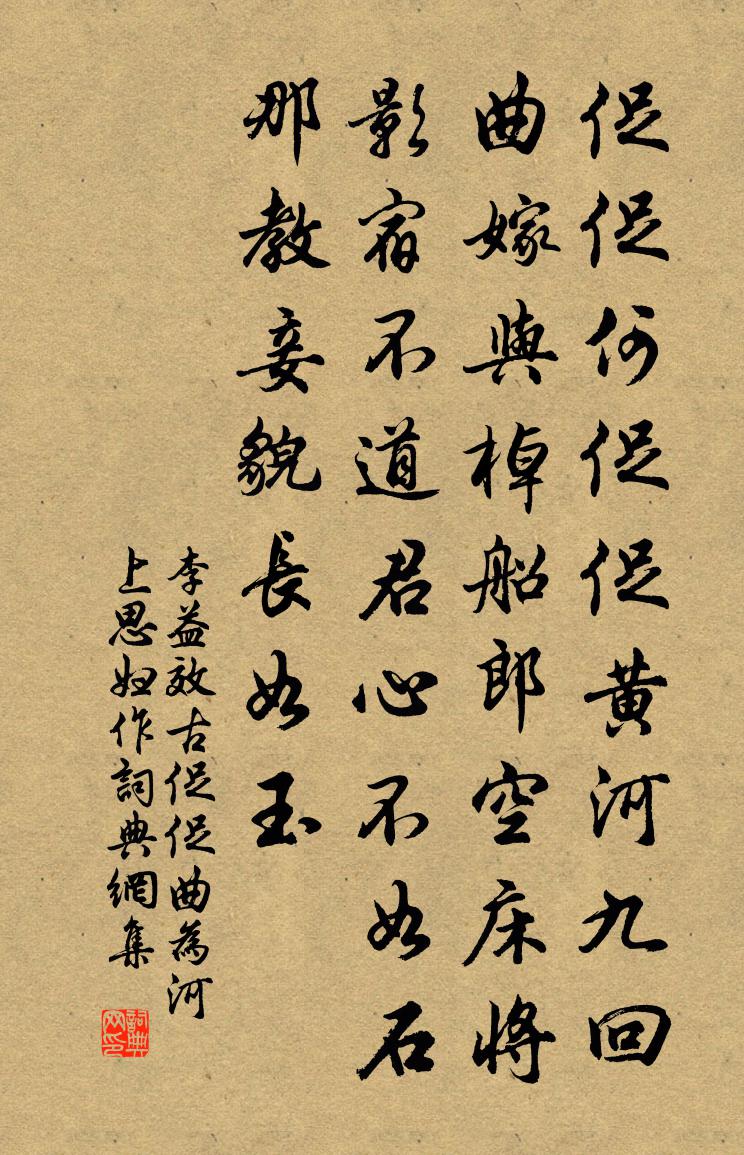 促促何促促黄河九回
曲嫁與棹船郎空床將
影宿不道君心不如石
那教妾貌長如玉
李益效古促促曲為河
上思婦作詞典網集
詞典网印